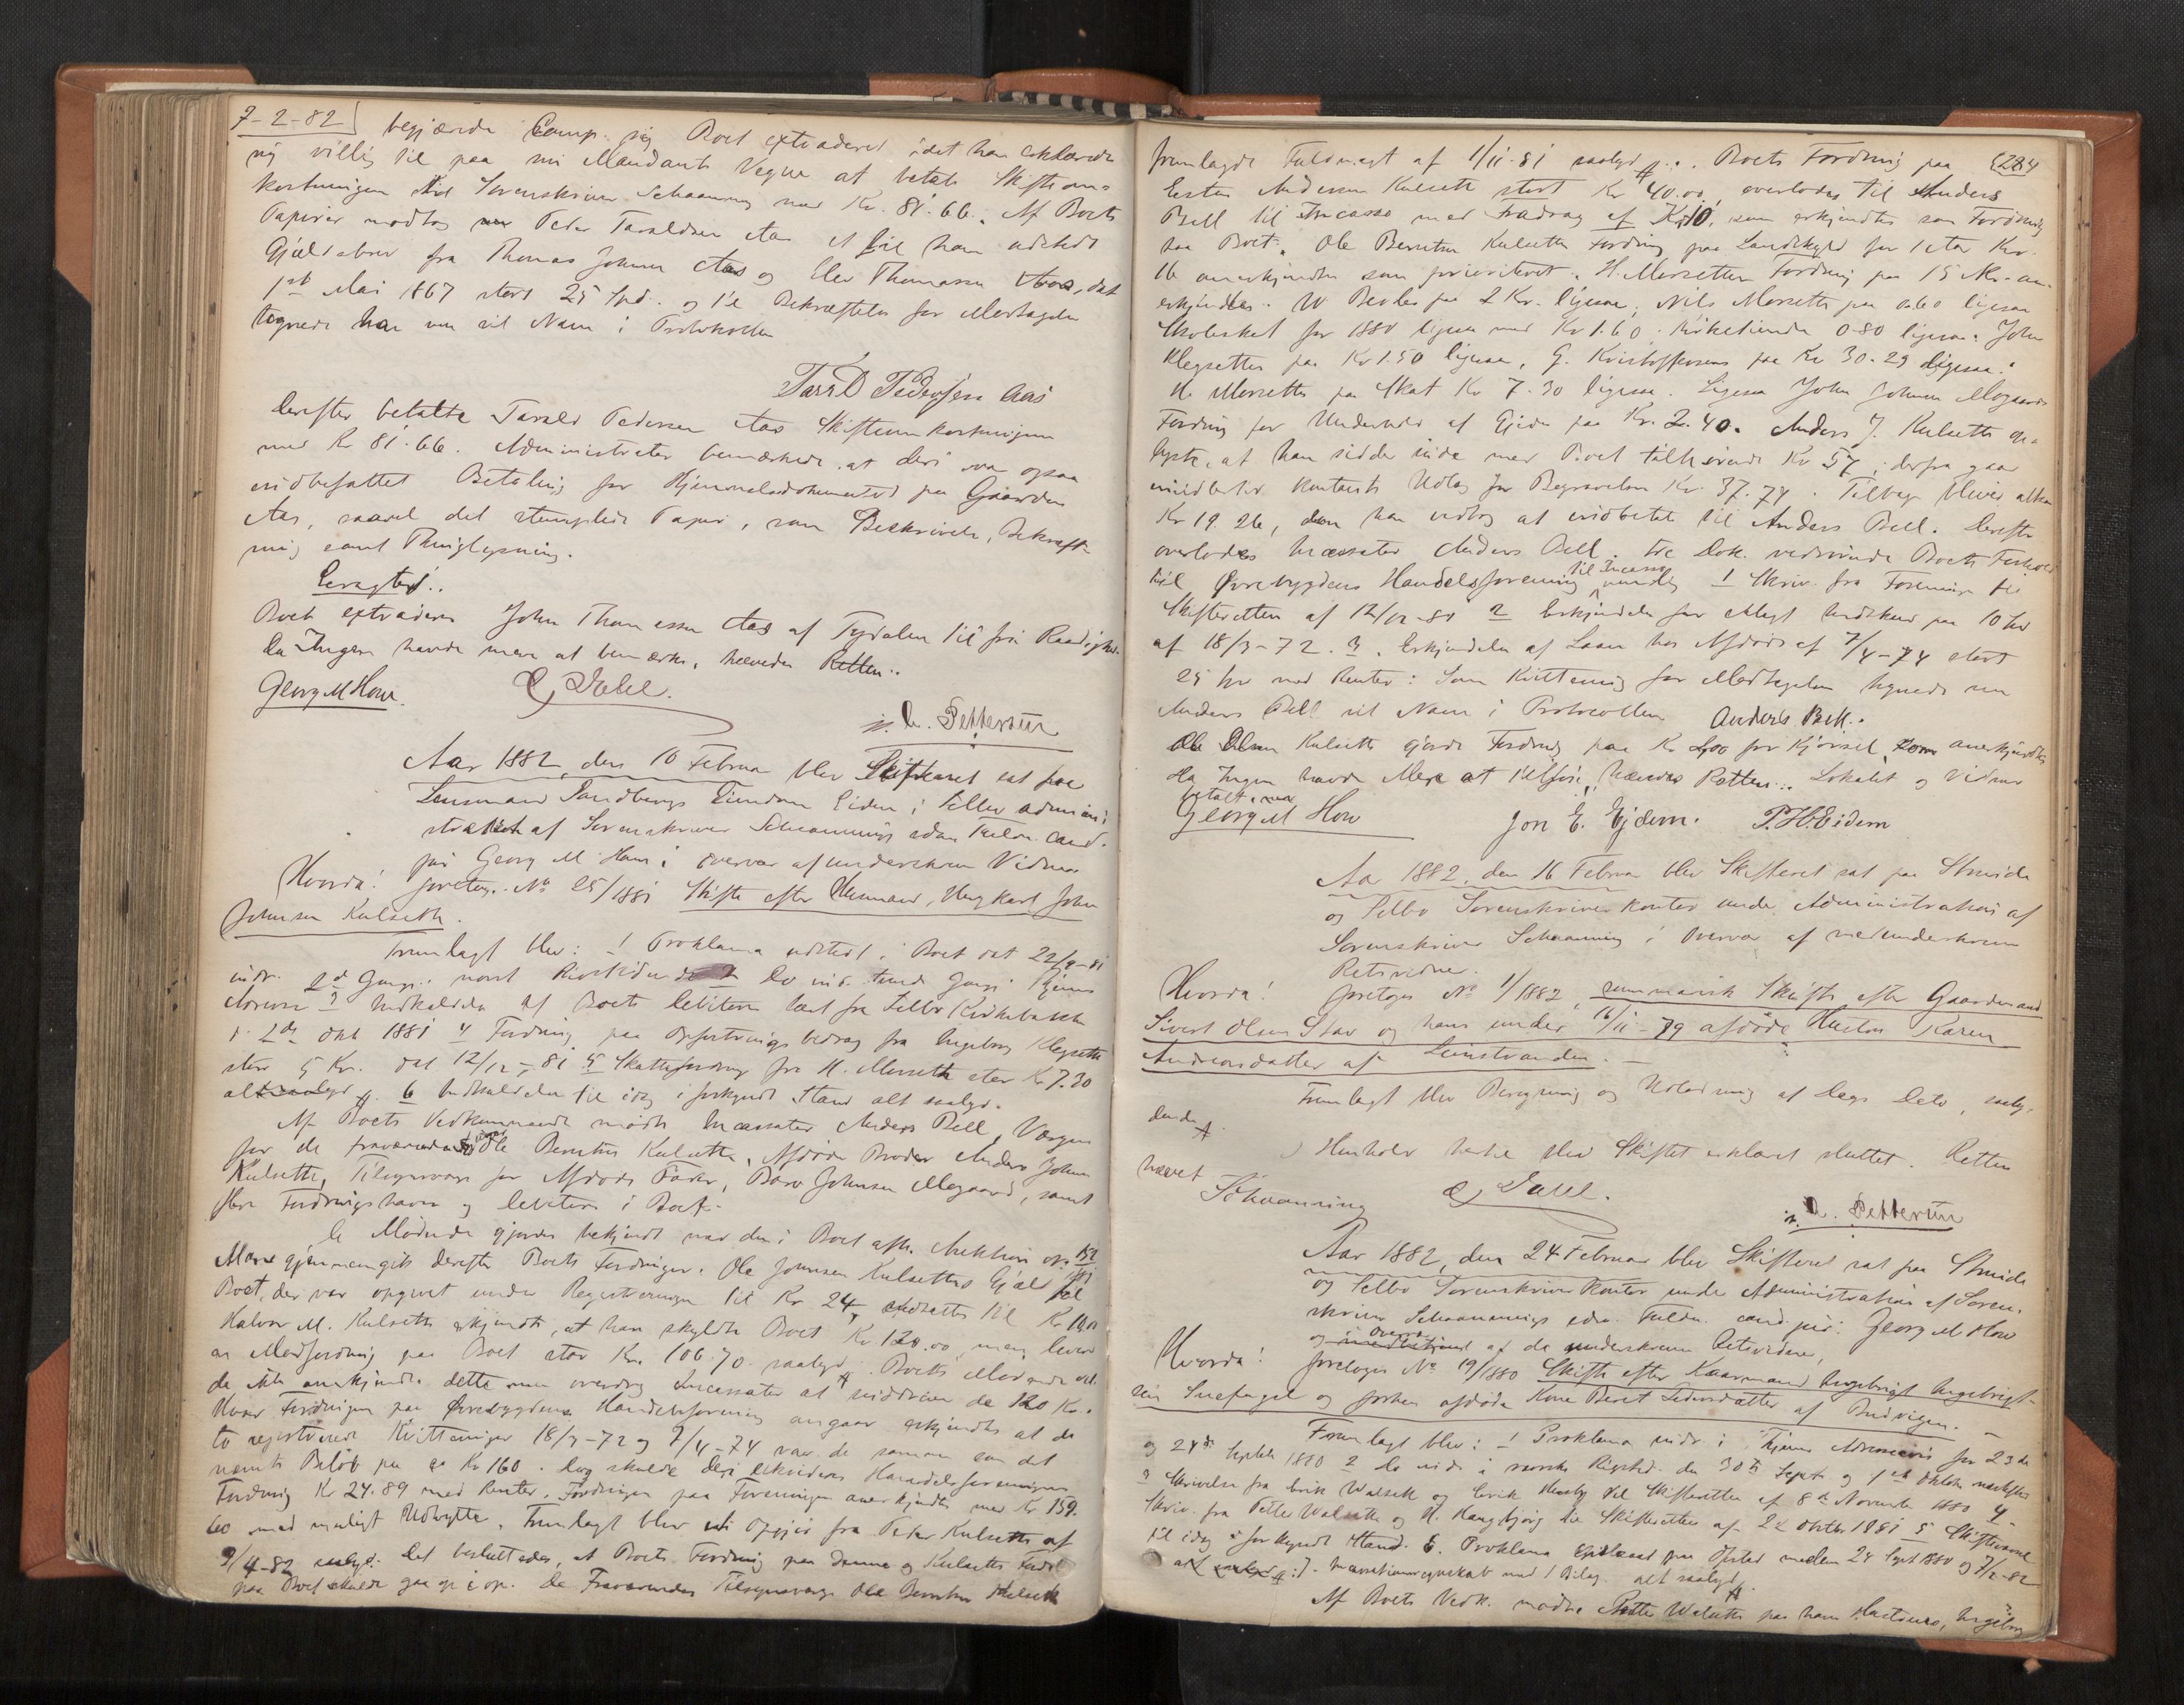 7-2-82 begjærede Comp. sig Boet extraderet idet han erklærede
sig villig til paa sin Mandants Vegne at betale Skifteom-
kostningen til Sorenskriver Schaanning med Kr. 81.66. Af Boets
Papirer modtog Peder Taraldsen Aas et til ham udstedt
Gjeldsbrev fra Thomas Johnsen Aas og Elev Thomassen Aas, dat
1st Mai 1867 stort 25 Spd. og til Bekræftelse for Modtagelsen
tegnede han sit Navn i Protokollen
Tarald Pedersen Aas
Derefter betalte Tarald Pedersen Aas Skifteomkostningerne
med Kr 81.66. Administrator bemærkede at deri var ogsaa
indbefattet Betaling for Hjemmelsdokumentet paa Gaarden
Aas, saavel det stemplede Papir, som Beskrivelse, Bekræft-
ning samt Thinglysning.
Eragtet:
Boet extraderes John Thomassen Aas af Tydalen til fri Raadighed.
Da Ingen havde mere at bemærke, hævedes Retten..
Georg M How. E Dahl.
C. Pettersen
Aar 1882, den 10 Februar blev Skifteret sat paa
Lensmand Sandbergs Eiendom Eidem i Selbu administreret
af Sorenskriver Schaannings edsv. Fuldm. cand.
jur Georg M How i Overvær af underskrevne Vidner
Hvorda! foretoges No 25/1881 Skifte efter Ungkarl John
Johnsen Kulseth.
Fremlagt blev: 1 Proklama udstedt i Boet dat 22/9-81
indr. 2d Gang i norsk Rigstidende 2 Do indr. tred Gang i Thjems
Adresse 3 Indkaldelse af Boets Debitorer læst fra Selbu Kirkebakke
d. 2den Okt 1881 4 Fordring paa Opfostringsbidrag fra Ingeborg Klegseth
stor 5 Kr. dat 12/12-81 5 Skattefordring fra H. Morseth stor Kr 7.30
6 Indkaldelse til idag i forkyndt Stand alt saalyd.
Af Boets Vedkommende mødte Incassator Anders Bell, Værgen
for de fraværende Ole Berntsen Kulseth, Afdødes Broder Anders Johnsen
Kulseth, Tilsynsværge for Afdødes Fader, Baro Johnsen Mogaard, samt
flere Fordringshavere og Debitorer i Boet.
De Mødende gjordes bekjendt med den i Boet afh. Auktion
Man gjennemgik derefter Boets Fordringer. Ole Johnsen Kulseths Gjæld til
Boet, der var opgivet under Registreringen til Kr 24, nedsattes til Kr 10,00
Halvor M. Kulseth erkjendte, at han skyldte Boet Kr 120.00, men leverede
en Modfordring paa Boet stor Kr. 106.70 saalyd. Boets Mødende
de ikke anerkjendte dette men overdrog Incassator at inddrive de 120 Kr.
Hvad Fordringen paa Øvrebygdens Handelsforening angaar erkjendtes at de
to registrerede Kvitteringer 18/3-72 og 7/4-74 var de samme som det
nævnte Beløb paa Kr 160. Dog skulde deri likvideres Handelsforeningens
Fordring Kr 24.89 med Renter. Fordringen paa Foreningen anerkjendtes med Kr 159.
60 med muligt Udbytte. Fremlagt blev et Opgjør fra Peder Kulseth af
9/4-82 saalyd. Det besluttedes, at Boets Fordring paa denne og Kulseths Fordr
paa Boet skulde gaa op i op. De Fraværendes Tilsynsværge Ole Berntsen Kulseth
284
fremlagde Fuldmagt af 1/11-81 saalyd. Boets Fordring paa
Esten Andersen Kulseth stort Kr 40.00 overlodes til Anders
Bell til Incasso med Fradrag af Kr 10, som erkjendtes som Fordring
paa Boet. Ole Berntsen Kulseths Fordring paa Landskyld for 1 Aar Kr.
16 anerkjendtes som prioriteret. H. Morseths Fordring paa 15 Kr. an-
erkjendtes. paa 2 Kr. ligesaa, Nils Morseths paa 0.60 ligesaa
Skoleskat for 1880 ligesaa med Kr 1.60. Kirketiende 0.80 ligesaa. John
Klegseths paa Kr 1.50 ligesaa, G. Kristoffersens paa Kr 30.29 ligesaa.
H. Morseths paa Skat Kr 7.30 ligesaa. Ligesaa John Johnsen Mogaards
Fordring for Underhold af Gjeder paa Kr. 2.40. Anders J. Kulseth op-
lyste, at han sidder inde med Boet tilhørende Kr 57, derfra gaar
imidlertid kontante Udlæg for Begravelsen Kr. 37.74. Tilbage bliver altsaa
Kr 19.26, den han vedtog at indbetale til Anders Bell. Derefter
overlodes Incassator Anders Bell tre Dok. vedrørende Boets Forhold
til Øvrebygdens Handelsforening til Incasso nemlig 1 Skriv. fra Foreningen til
Skifteretten af 12/12-80 2 Erkjendelse for Modt Indskud paa 10 Spd
af 18/3-72. 3. Erkjendelse af Laan hos Afdøde af 7/4-74 stort
25 Spd med Renter: Som Kvittering for Modtagelsen tegnede
Anders Bell sit Navn i Protocollen Anders Bell.
Ole Olsen Kulseth gjorde Fordring paa Kr 2,00 for Kjørsel, som anerkjendtes
Da Ingen havde Mere at tilføie, hævedes Retten... Lokalet og Vidner
betalt
Georg M How Jon E. Ejdem. P.H.Eidem
Aar 1882, den 16 Februar blev Skifteret sat paa Strinde
og Selbu Sorenskriverkontor under Administration af
Sorenskriver Schaanning i Overvær af medunderskrevne
Retsvidner.
Hvorda! foretoges No 1/1882, summarisk Skifte efter Gaardmand
Sivert Olsen Stav og hans under 16/11-79 afdøde Hustru Karen
Andreasdatter af Leinstranden.
Fremlagt blev Beregning og Udlodning af Dags Dato, saaly-
dende
I Henhold hertil blev Skiftet erklæret sluttet. Retten
hævet
Schaanning E Dahl.
C. Pettersen
Aar 1882, den 24 Februar blev Skifteret sat paa Strinde
og Selbu Sorenskriverkontor under Administration af Soren-
skriver Schaannings edsv. Fuldm. cand. jur. Georg M How
og i Overvær af de underskrevne Retsvidner,
Hvorda! foretoges No 19/1880 Skifte efter Kaarmand Ingebrigt Ingebrigt-
sen Snefugel og forhen afdøde Kone Beret Pedersdatter af Budvigen.
Fremlagt blev: 1 Proklama indr. i Thjems Adresseavis for 23de
og 24de Septbr 1880 2 Do indr. i norske Rigstid. den 30te Sept. og 1ste Oktober næstefter
3 Skrivelse fra Erik Walseth og Erik til Skifteretten af 8de November 1880 4
Skriv. fra Petter Walseth og H. Haugbjørg til Skifteretten af 24 Oktbr 1881 5 Skiftevarsel
til idag i forkyndt Stand. 6. Proklama opslaaet paa mellem 24 Sept 1880 og 7/2-82
7. Incassationsregnskab med 1 Bilag. alt saalyd.
Af Boets Vedk. mødte Petter Walseth paa hans Hustrues, Ingeborg